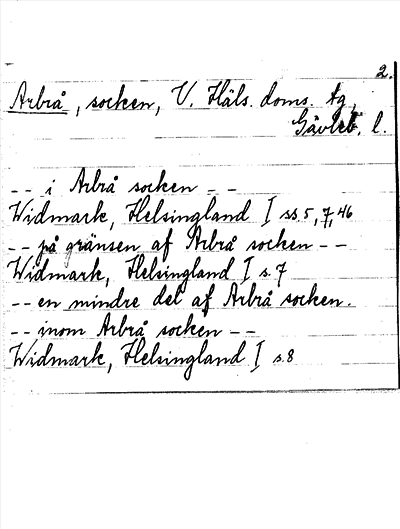 2.
Arbrå, socken, V. Häls. doms. tg,
Gävleb. l.
-- i Arbrå socken --
Widmark, Helsingland I ss. 5, 7, 46
-- på gränsen af Arbrå socken --
Widmark, Helsingland I s. 7
-- en mindre del af Arbrå socken.
-- inom Arbrå socken --
Widmark, Helsingland I s. 8